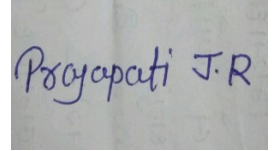 Prajapati J.R